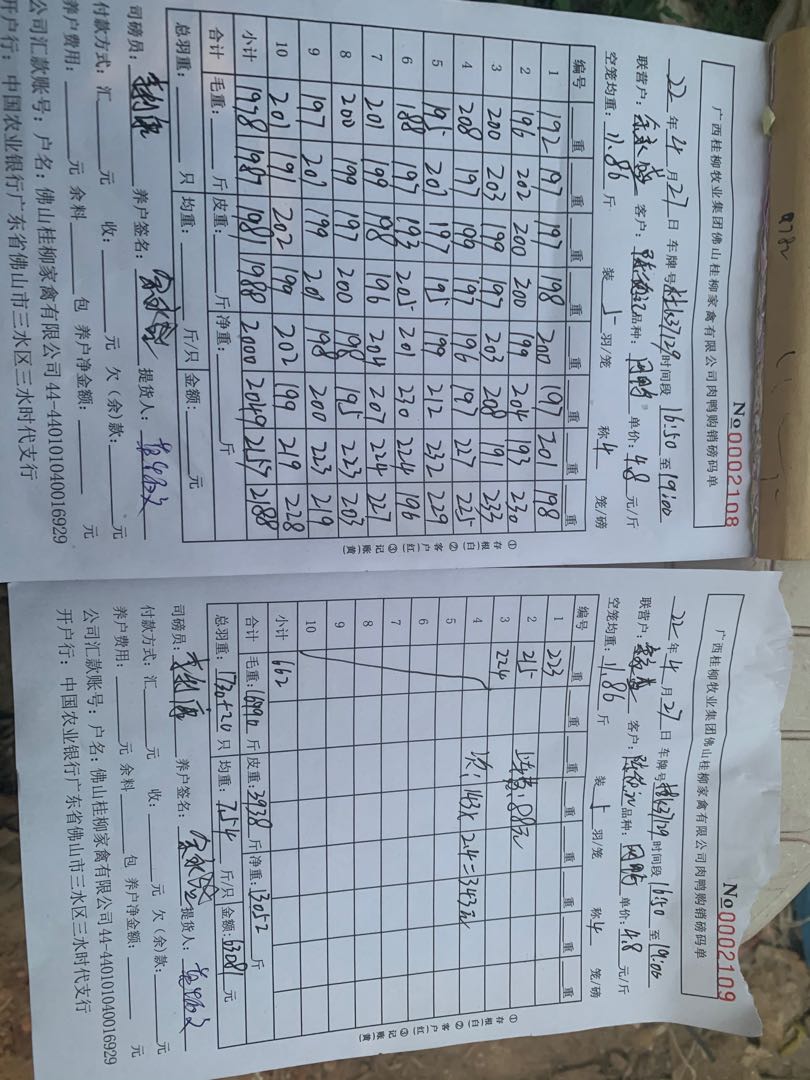 9782
No 0002108
广西桂柳牧业集团佛山桂柳家禽有限公司肉鸭购销磅码单
22年4月27日 车牌号 时间段16:50至19:00
联营户: 客户: 品种: 单价:4.8元/斤
空笼均重:11.86斤 装5羽/笼 称4笼/磅
编号 重 重 重 重 重 重 重 重
1 192 197 197 198 200 197 201 198
2 196 202 200 200 199 204 193 230
3 200 203 199 197 203 208 191 233
4 208 197 199 197 196 197 227 225
5 195 201 197 195 199 212 232 229
6 188 197 193 205 201 230 224 196
7 201 199 198 196 204 207 224 227
8 200 199 197 200 198 195 223 203
9 197 201 199 201 198 200 223 219
10 201 191 202 199 202 199 219 228
小计 1978 1987 1981 1988 2000 2049 2157 2188
合计 毛重: 斤 皮重: 斤 净重: 斤
总羽重: 只 均重: 斤/只 金额: 元
司磅员: 养户签名: 提货人:
付款方式:汇 元 收: 元 欠(余)款: 元
养户费用: 元 余料 包 养户净金额: 元
公司汇款账号:户名:佛山桂柳家禽有限公司44-440101040016929
开户行:中国农业银行广东省佛山市三水区三水时代支行
①存根(白) ②客户(红) ③记账(黄)
No 0002109
广西桂柳牧业集团佛山桂柳家禽有限公司肉鸭购销磅码单
22年4月27日 车牌号 时间段16:50至19:00
联营户: 客户: 品种: 单价:4.8元/斤
空笼均重:11.86斤 装5羽/笼 称4笼/磅
编号 重 重 重 重 重 重 重 重
1 223
2 215
3 224
4 143×2.4=343元
5
6
7
8
9
10
小计 662
合计 毛重:16990斤 皮重:3938斤 净重:13052斤
总羽重:1730+20只 均重:7.54斤/只 金额:63081元
司磅员: 养户签名: 提货人:
付款方式:汇 元 收: 元 欠(余)款: 元
养户费用: 元 余料 包 养户净金额: 元
公司汇款账号:户名:佛山桂柳家禽有限公司44-440101040016929
开户行:中国农业银行广东省佛山市三水区三水时代支行
①存根(白) ②客户(红) ③记账(黄)